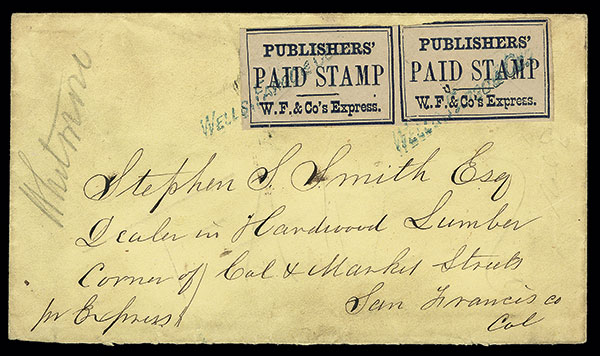 PUBLISHERS'
PAID STAMP
W. F. & Co's Express.
PUBLISHERS'
PAID STAMP
W. F. & Co's Express.
WELLS, FARGO & CO.
WELLS, FARGO & CO.
Whitmore
Stephen S. Smith Esq
Dealer in Hardwood Lumber
Corner of Cal & Market Streets
San Francisco
pr Express
Cal